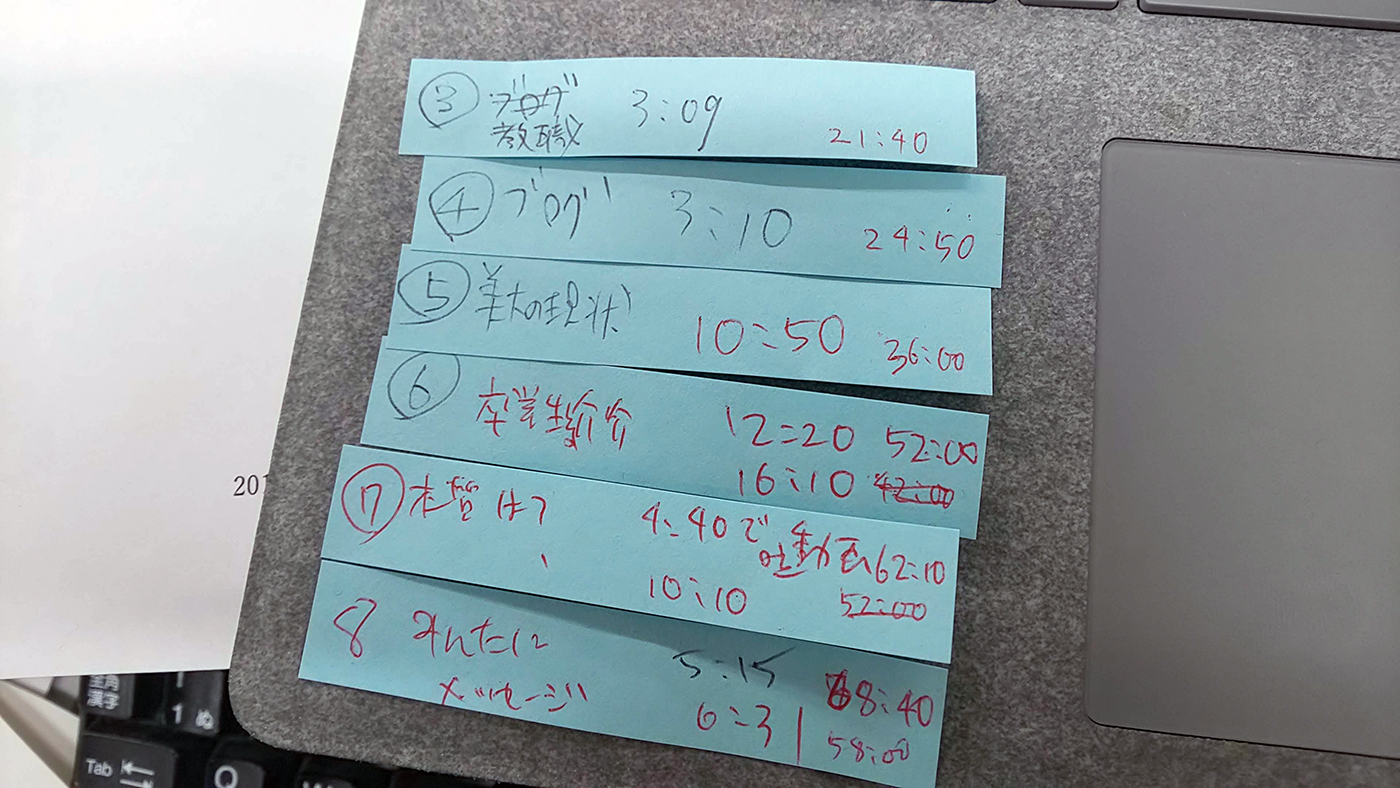 ③ ブログ 3:09 21:40
教職
④ ブログ 3:10 24:50
⑤ 美大の現状 10:50 36:00
⑥ 卒業生紹介 12:20 52:00
16:10 42:00
⑦ 本質は? 4:40で 動画 62:10
10:10 52:00
8 みんなに 5:15 68:40
メッセージ 6:31 58:00
201
漢字
1 ぬ
Tab
Q